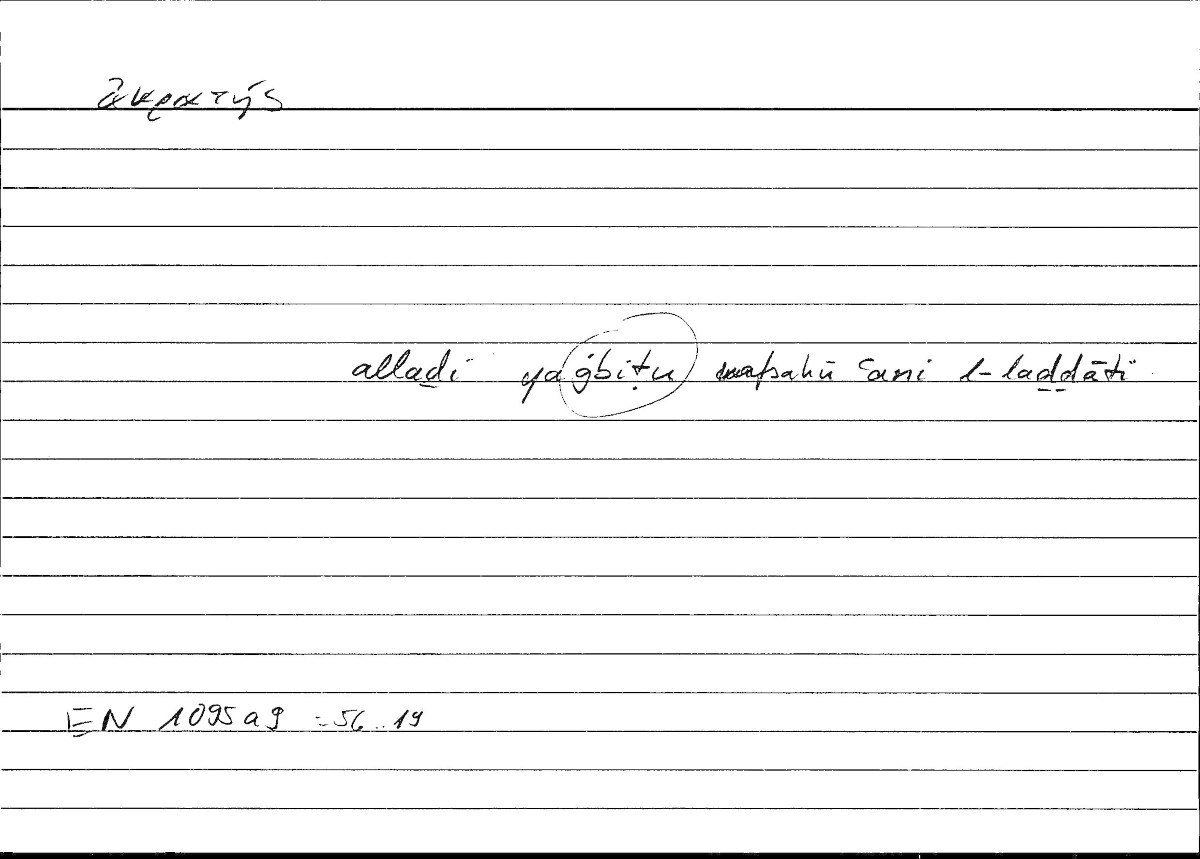 ἀκρατής
allaḏī yaġbiṭu nafsahū ʿani l-laḏḏāti
EN 1095a9 = 56.19